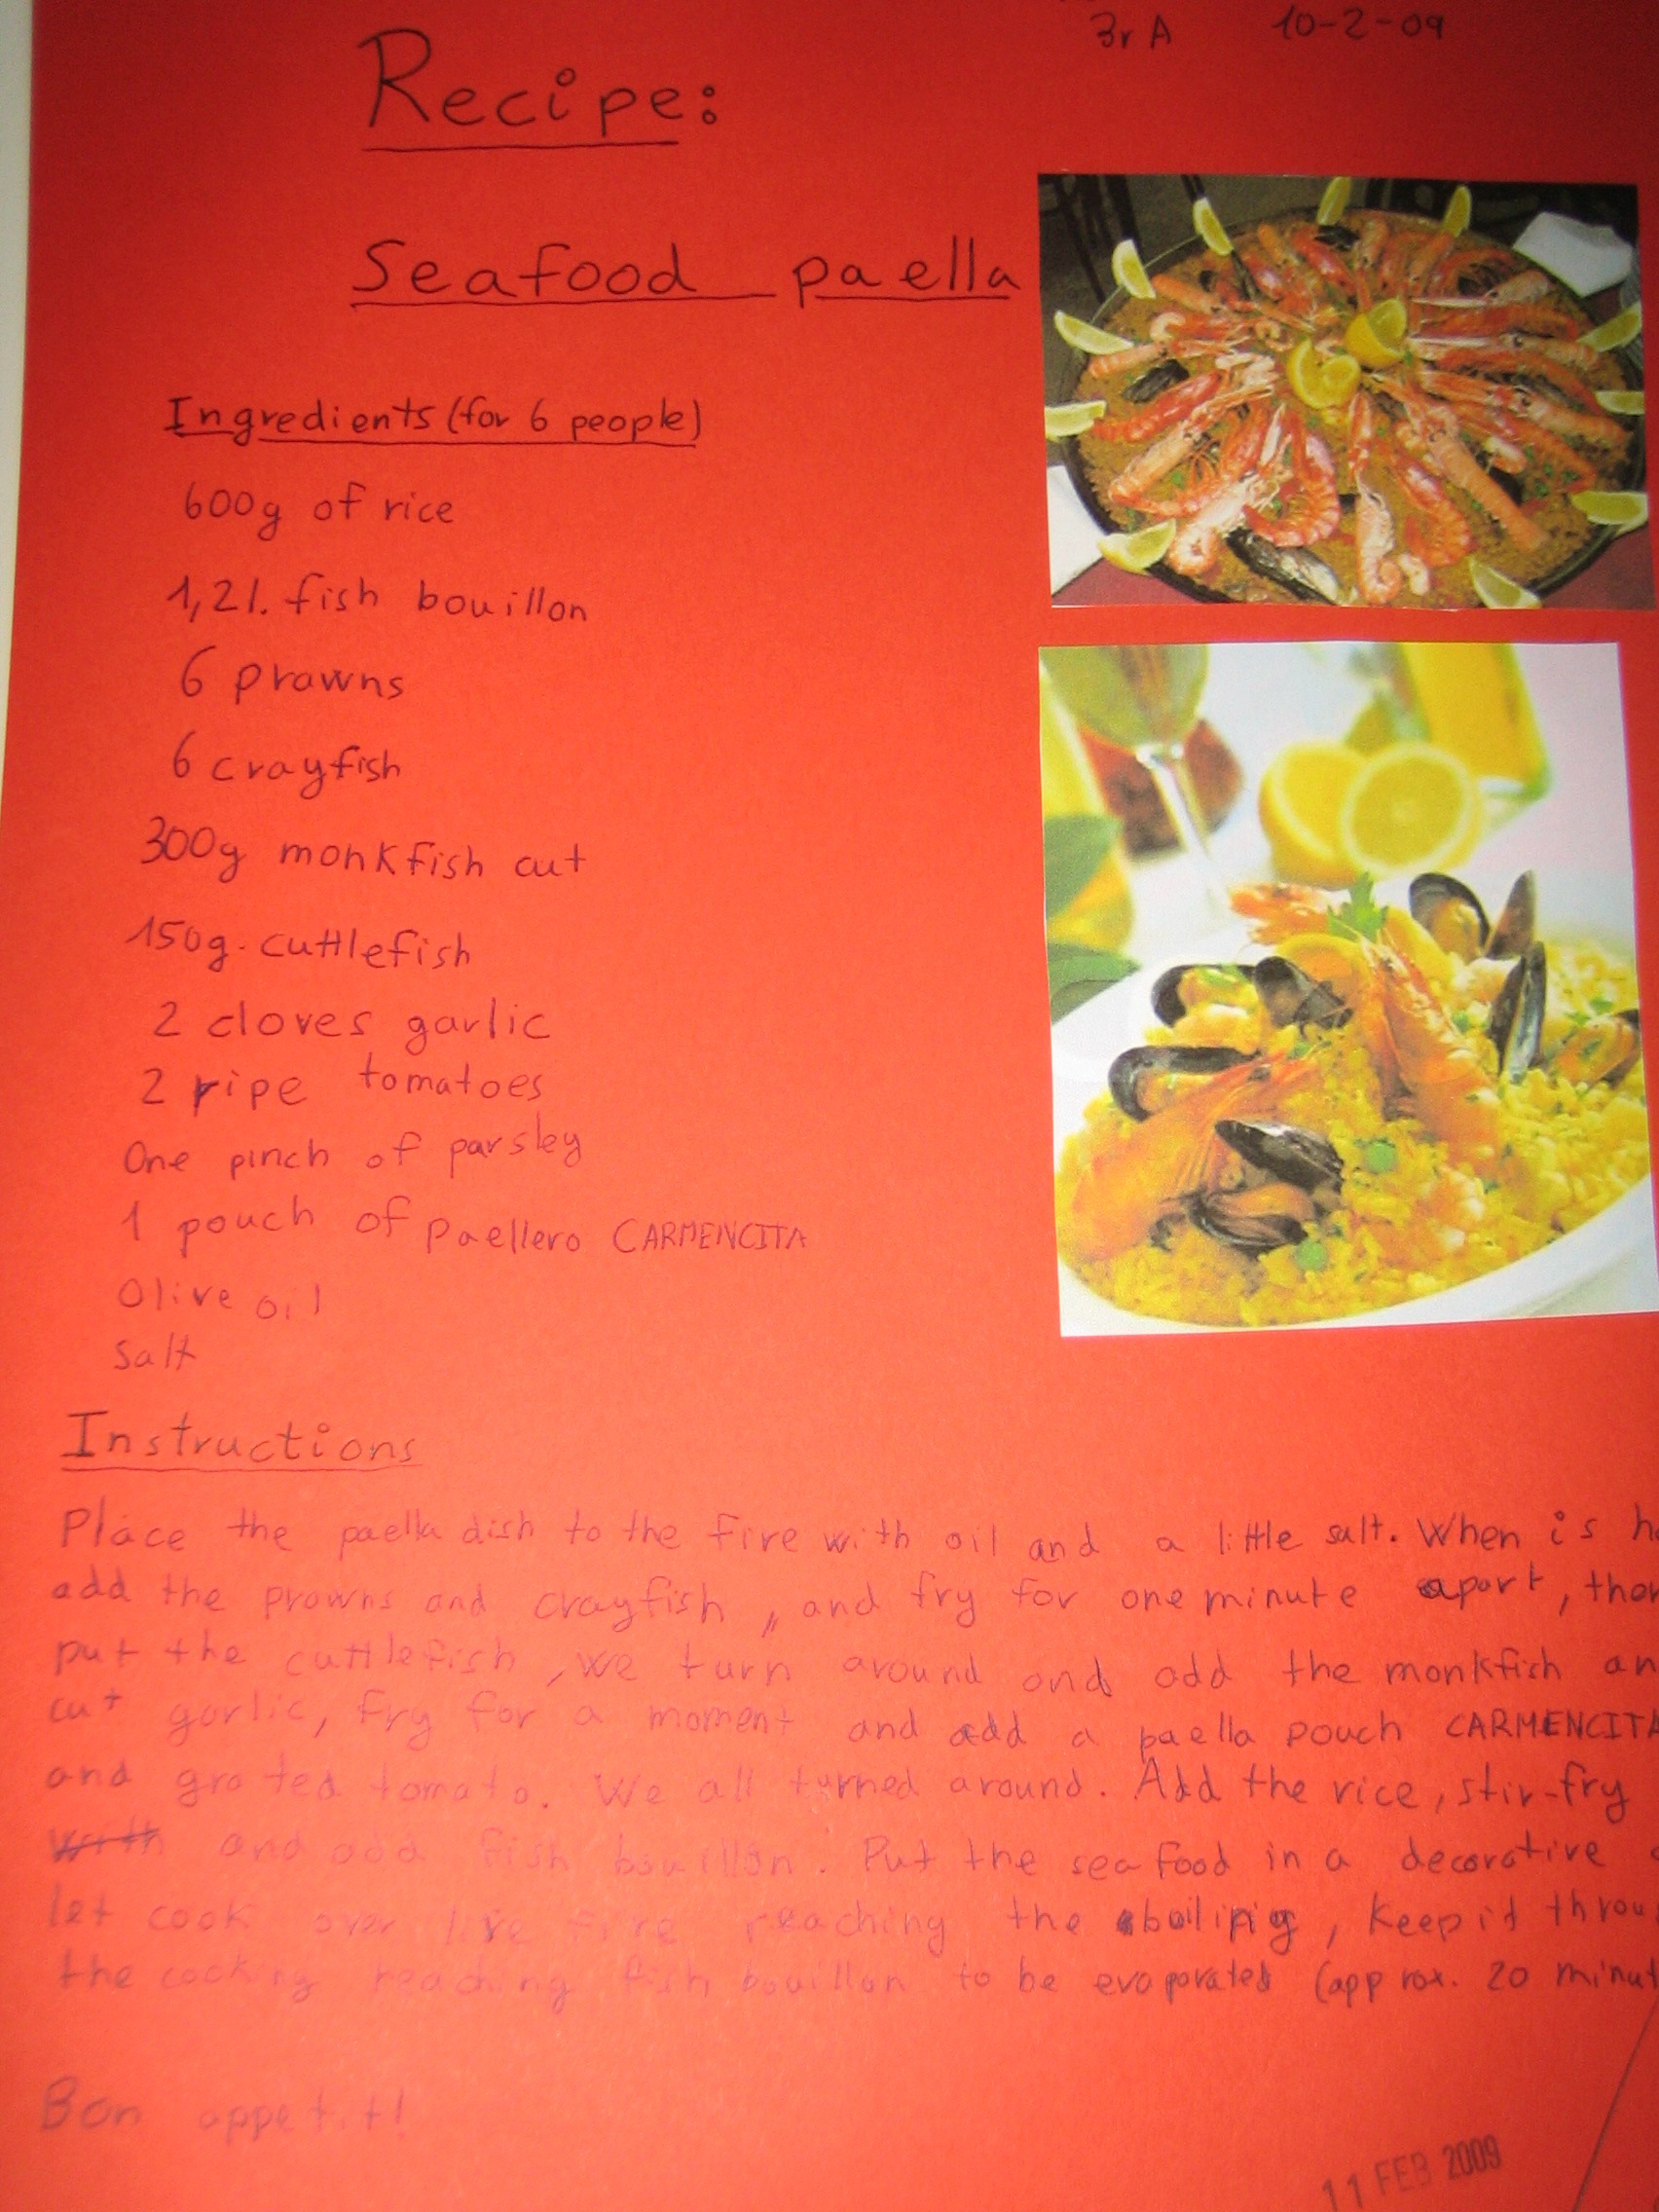 3r A 10-2-09
Recipe:
Seafood paella
Ingredients (for 6 people)
600g of rice
1,2l. fish bouillon
6 prawns
6 crayfish
300g monkfish cut
150g. cuttlefish
2 cloves garlic
2 ripe tomatoes
One pinch of parsley
1 pouch of paellero CARMENCITA
Olive oil
Salt
Instructions
Place the paella dish to the fire with oil and a little salt. When is
add the prowns and crayfish, and fry for one minute apart,
put the cuttlefish, we turn around and add the monkfish
cut garlic, fry for a moment and add a paella pouch CARMENCITA
and grated tomato. We all turned around. Add the rice, stir-fry
with and add fish bouillon. Put the seafood in a decorative
let cook over live fire reaching the boiling, keep it
the cooking reaching fish bouillon to be evaporated (approx. 20
Bon appetit!
11 FEB 2009